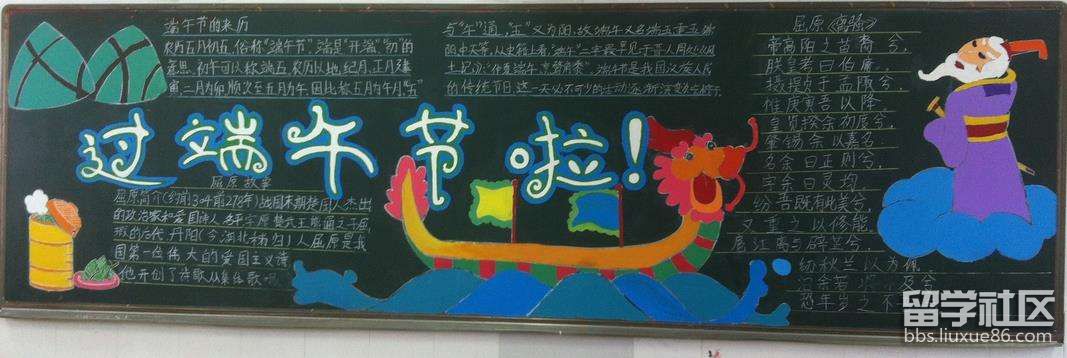 端午节的来历
农历五月初五，俗称“端午节”，端是“开端”、“初”的
意思。初午可以称端五。农历以地支纪月，正月建
寅，二月为卯，顺次至五月为午，因此称五月为午月，“五”
与“午”通，“五”又为阳，故端午又名端五、重五、端
阳、中天等，从史籍上看，“端午”二字最早见于晋人周处《风
土记》：“仲夏端午，烹鹜角黍”。端午节是我国汉族人民
的传统节日，这一天必不可少的活动逐渐演变
过端午节啦！
屈原故事
屈原简介(约前340年前278年)战国末期楚国人杰出
的政治家和爱国诗人
的后代 丹阳(今湖北秭归)人屈原是我
国第一位伟大的爱国主义诗
他开创了诗歌从集体歌唱
屈原《离骚》
帝高阳之苗裔兮，
朕皇考曰伯庸。
摄提贞于孟陬兮，
惟庚寅吾以降。
皇览揆余初度兮，
肇锡余以嘉名
名余曰正则兮，
字余曰灵均。
纷吾既有此美兮，
又重之以修能。
扈江离与辟芷兮，
纫秋兰以为佩
汩余若将不及兮
恐年岁之不
留学社区
bbs.liuxue86.com